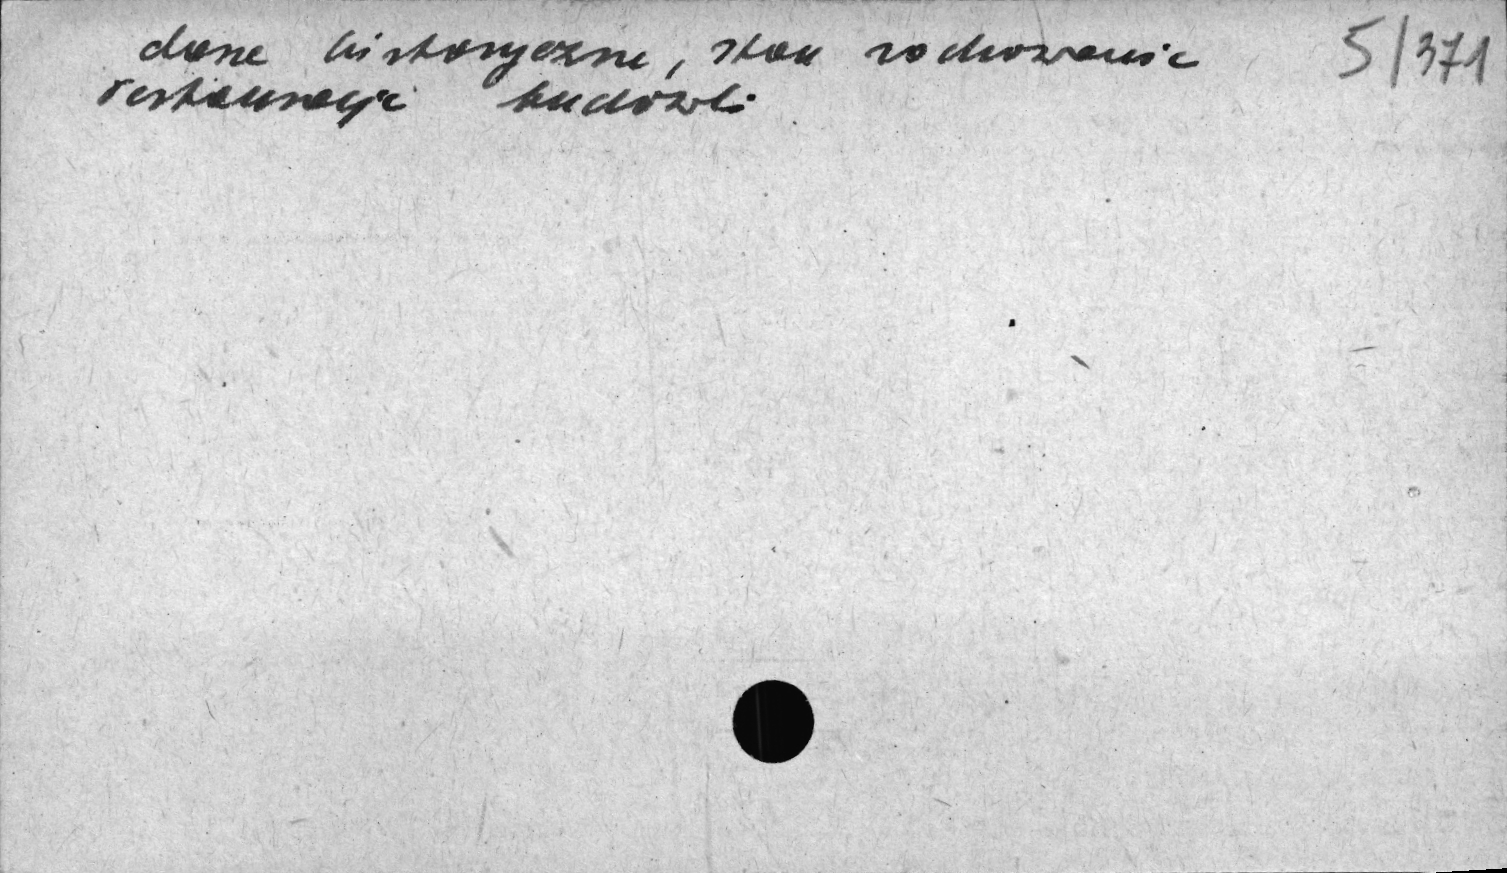 dane historyczne, stan zachowania 5/371
restauracje budowli